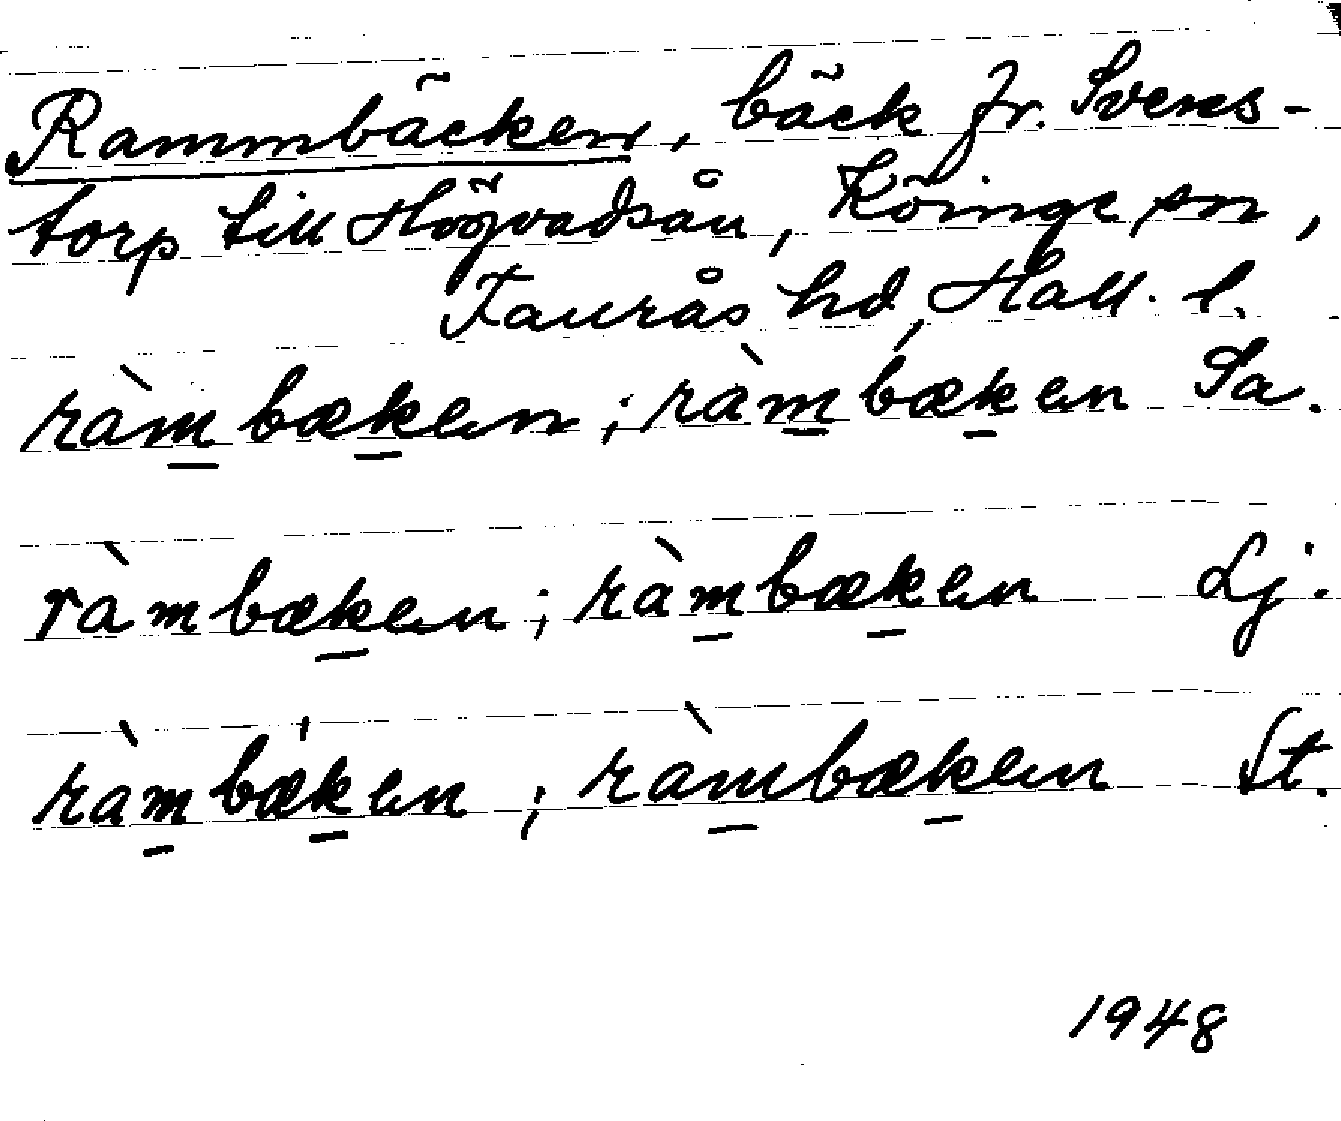 Rammbäcken, bäck fr. Svens-
torp till Högvadsån, Köinge sn,
Faurås hd, Hall. l.
ràmbæken; ràmbæken Sa.
ràmbæken; ràmbæken Lj.
ràmbæken; ràmbæken St.
1948